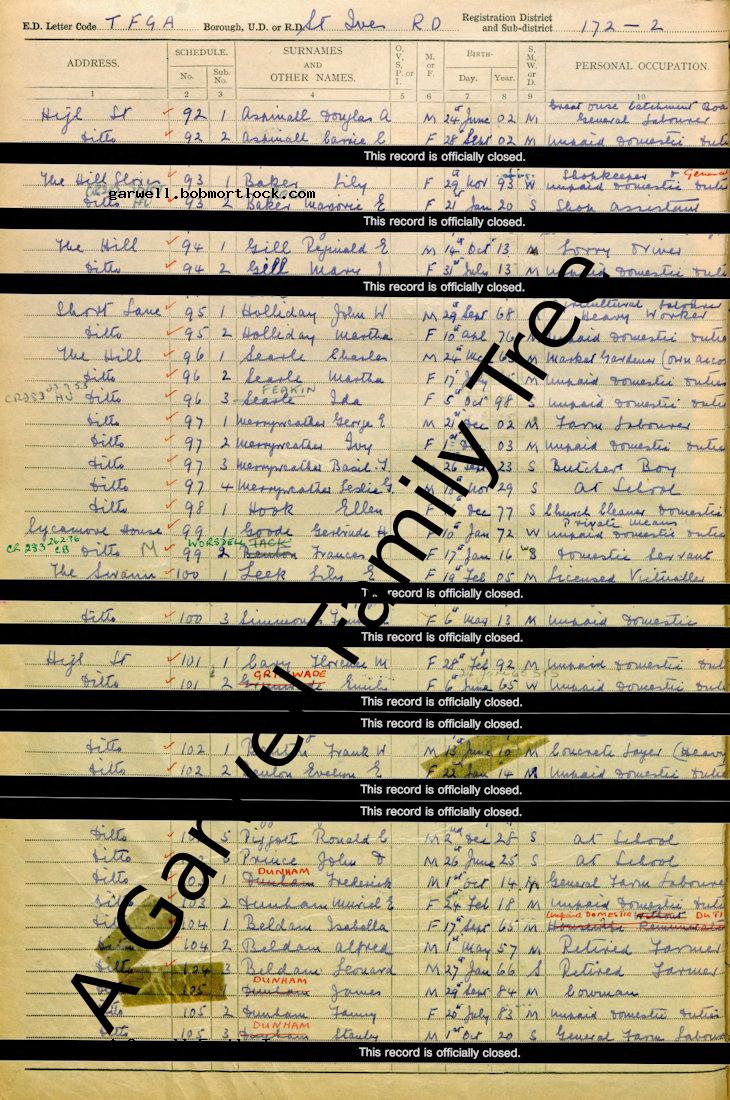 E.D. Letter Code TFGA Borough, U.D. or R.D. St Ives RD Registration District and Sub-district 172-2
ADDRESS. SCHEDULE. No. Sub. No. SURNAMES AND OTHER NAMES. O., V., S., P. or I. M. or F. BIRTH- Day. Year. S. M. W. or D. PERSONAL OCCUPATION.
1 2 3 4 5 6 7 8 9 10
High St 92 1 Aspinall Douglas A M 24th June 02 M Great Ouse Catchment Boa General Labourer
Ditto 92 2 Aspinall Carrie E F 28th Sept 02 M Unpaid Domestic Duti
This record is officially closed.
The Hill Stores 93 1 Baker Lily F 29th Nov 93 W Shopkeeper & General Unpaid Domestic Duti
garwell.bobmortlock.com
Ditto 93 2 Baker Marjorie E F 21st Jan 20 S Shop Assistant
This record is officially closed.
The Hill 94 1 Gill Reginald E M 14th Oct 13 M Lorry Driver
Ditto 94 2 Gill Mary J F 31st July 13 M Unpaid Domestic Duti
This record is officially closed.
Short Lane 95 1 Holliday John W M 29th Sept 68 M Agricultural Labourer Heavy Worker
Ditto 95 2 Holliday Martha F 10th Apl 76 M Unpaid Domestic Duties
The Hill 96 1 Searle Charles M 24th M Market Gardener (own acco
Ditto 96 2 Searle Martha F 17th July M Unpaid Domestic Duties
CR283 HU Ditto 96 3 Searle Ida F 5th Oct 98 S Unpaid Domestic Duties
Ditto 97 1 Merryweather George E M 21st Dec 02 M Farm Labourer
Ditto 97 2 Merryweather Ivy F 1st 03 M Unpaid Domestic Duties
Ditto 97 3 Merryweather Basil F. 26 Sept 23 S Butchers Boy
Ditto 97 4 Merryweather Leslie G. M 10th Nov 29 S At School
Ditto 98 1 Hook Ellen F Dec 77 S Church Cleaner Domestic
Sycamore House 99 1 Goode Gertrude H F 10th Jan 72 W Private means Unpaid Domestic Duties
CR 283 26276 CB Ditto M 99 2 WORSDELL JACK Benton Frances F 17th Jan 16 S Domestic Servant
The Swann 100 1 Leek Lily E F 19th Feb 05 M Licensed Victualler
This record is officially closed.
Ditto 100 3 Simmons F 6th May 13 M Unpaid Domestic
This record is officially closed.
High St 101 1 Cary Florence M F 28th Feb 92 M Unpaid Domestic Duti
Ditto 101 2 GRIMWADE Emily F 6th June 65 W Unpaid Domestic Duti
This record is officially closed.
This record is officially closed.
Ditto 102 1 Frank W M 13th June 10 M Concrete Layer (Heavy
Ditto 102 2 Evelyn E F 22nd Jan 14 M Unpaid Domestic Duti
This record is officially closed.
This record is officially closed.
Ditto 5 Piggott Ronald E M 2nd Dec 28 S At School
Ditto Prince John D M 26th June 25 S At School
Ditto 1 DUNHAM Dunham Frederick M 1st Oct 14 M General Farm Labourer
Ditto 103 2 Dunham Muriel E F 24th Feb 18 M Unpaid Domestic Duti
Ditto 104 1 Beldam Isabella F 17th Sept 65 M UNPAID DOMESTIC DUTI
104 2 Beldam Alfred M 1st May 57 M Retired Farmer
Ditto 104 3 Beldam Leonard M 27th Jan 66 S Retired Farmer
Ditto 105 1 DUNHAM Dunham James M 29th Sept 84 M Cowman
Ditto 105 2 Dunham Fanny F 20th July 83 M Unpaid Domestic Duties
Ditto 105 3 DUNHAM Dunham Stanley M 1st Oct 20 S General Farm Labour
This record is officially closed.
A Garwell Family Tree